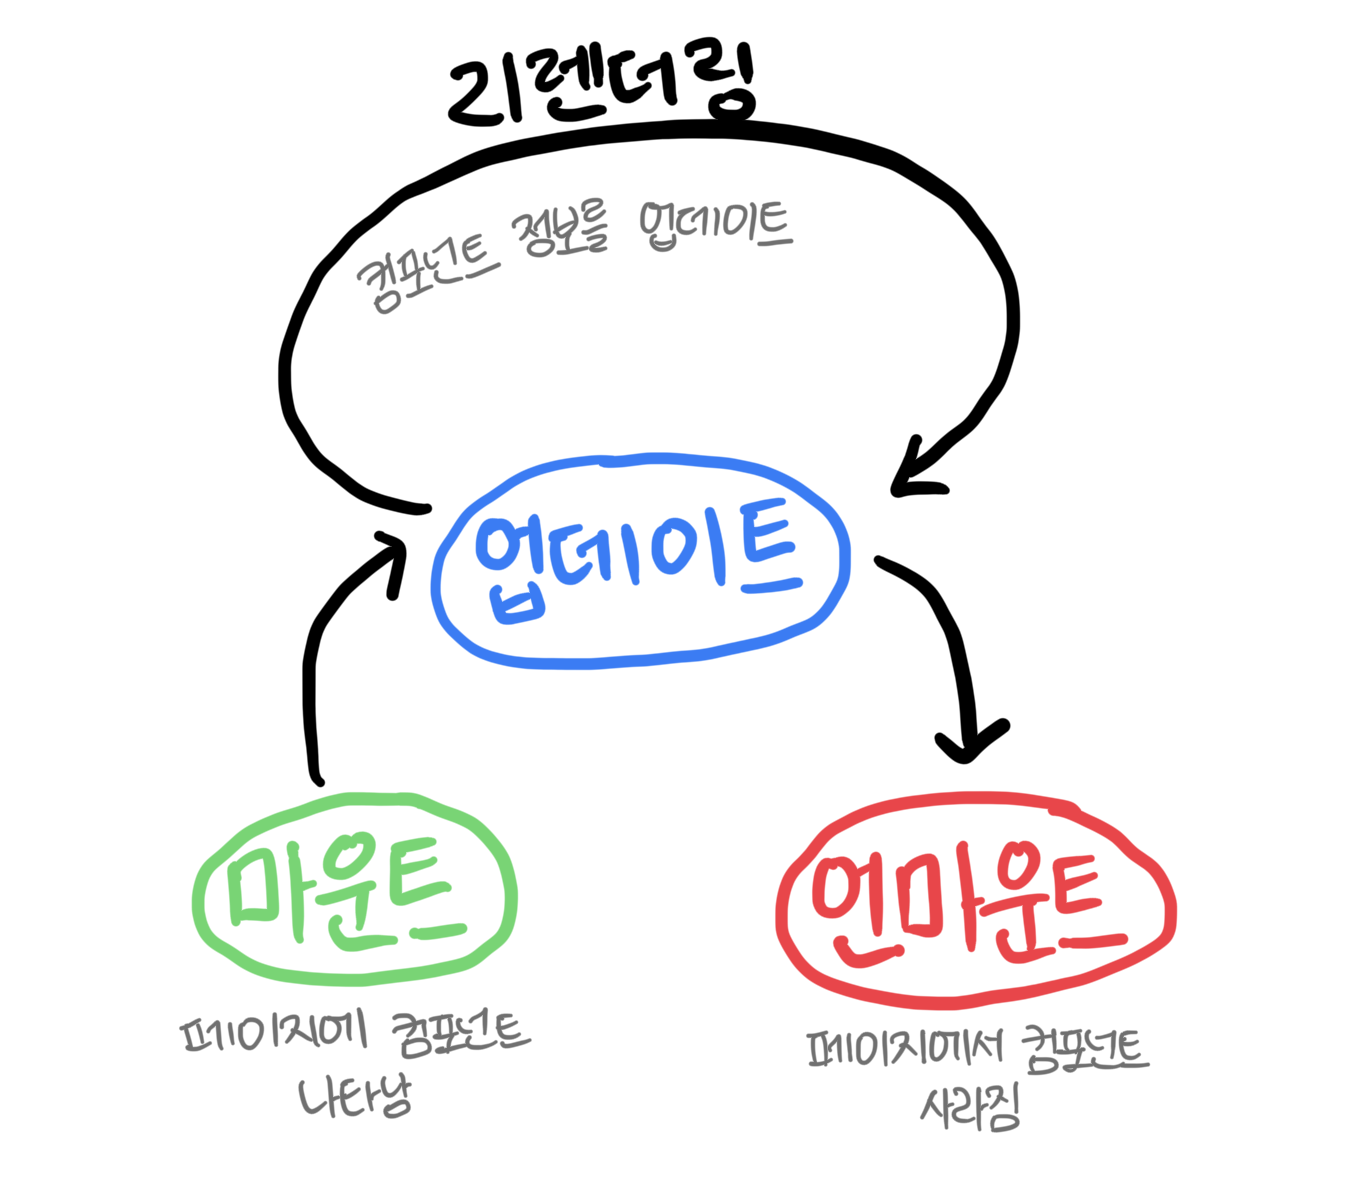 리렌더링
컴포넌트 정보를 업데이트
업데이트
마운트
페이지에 컴포넌트
나타남
언마운트
페이지에서 컴포넌트
사라짐